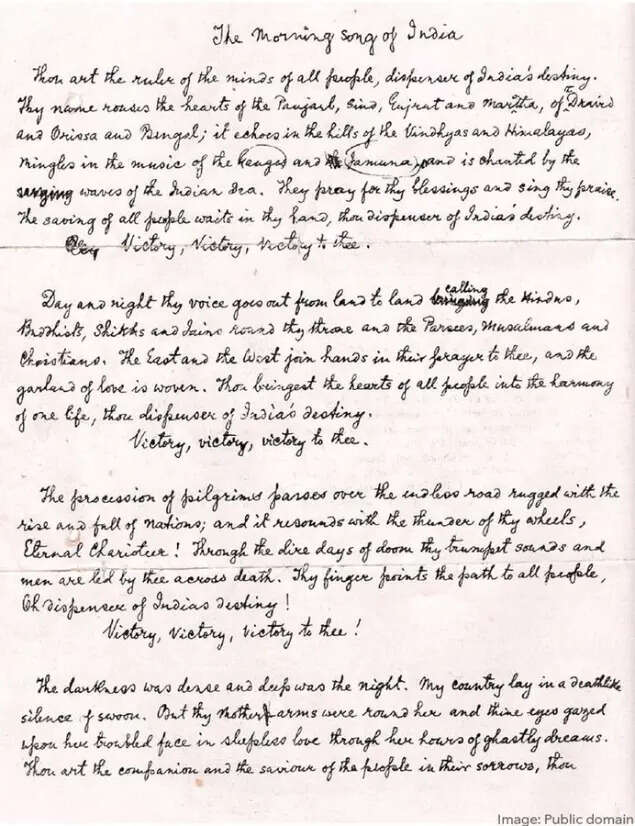 The Morning Song of India
Thou art the ruler of the minds of all people, dispenser of India's destiny.
Thy name rouses the hearts of the Panjarb, Sind, Gujrat and Maratha, of Dravid
and Orissa and Bengal; it echoes in the hills of the Vindhyas and Himalayas,
mingles in the music of the and Jamuna and is chanted by the
waves of the Indian Sea. They pray for thy blessings and sing thy praise.
The saving of all people waits in thy hand, thou dispenser of India's destiny.
Victory, Victory, Victory to thee.
Day and night thy voice goes out from land to land calling the Hindus,
Buddhists, Shikhs and Jains round thy throne and the Parsees, Musalmans and
Christians. The East and the West join hands in their prayer to thee, and the
garland of love is woven. Thou bringest the hearts of all people into the harmony
of one life, thou dispenser of India's destiny.
Victory, victory, victory to thee.
The procession of pilgrims passes over the endless road rugged with the
rise and fall of nations; and it resounds with the thunder of thy wheels,
Eternal Charioteer! Through the dire days of doom thy trumpet sounds and
men are led by thee across death. Thy finger points the path to all people,
Oh dispenser of India's destiny!
Victory, Victory, victory to thee!
The darkness was dense and deep was the night. My country lay in a deathlike
silence of swoon. But thy mother arms were round her and thine eyes gazed
upon her troubled face in sleepless love through her hours of ghastly dreams.
Thou art the companion and the saviour of the people in their sorrows, thou
Image: Public domain